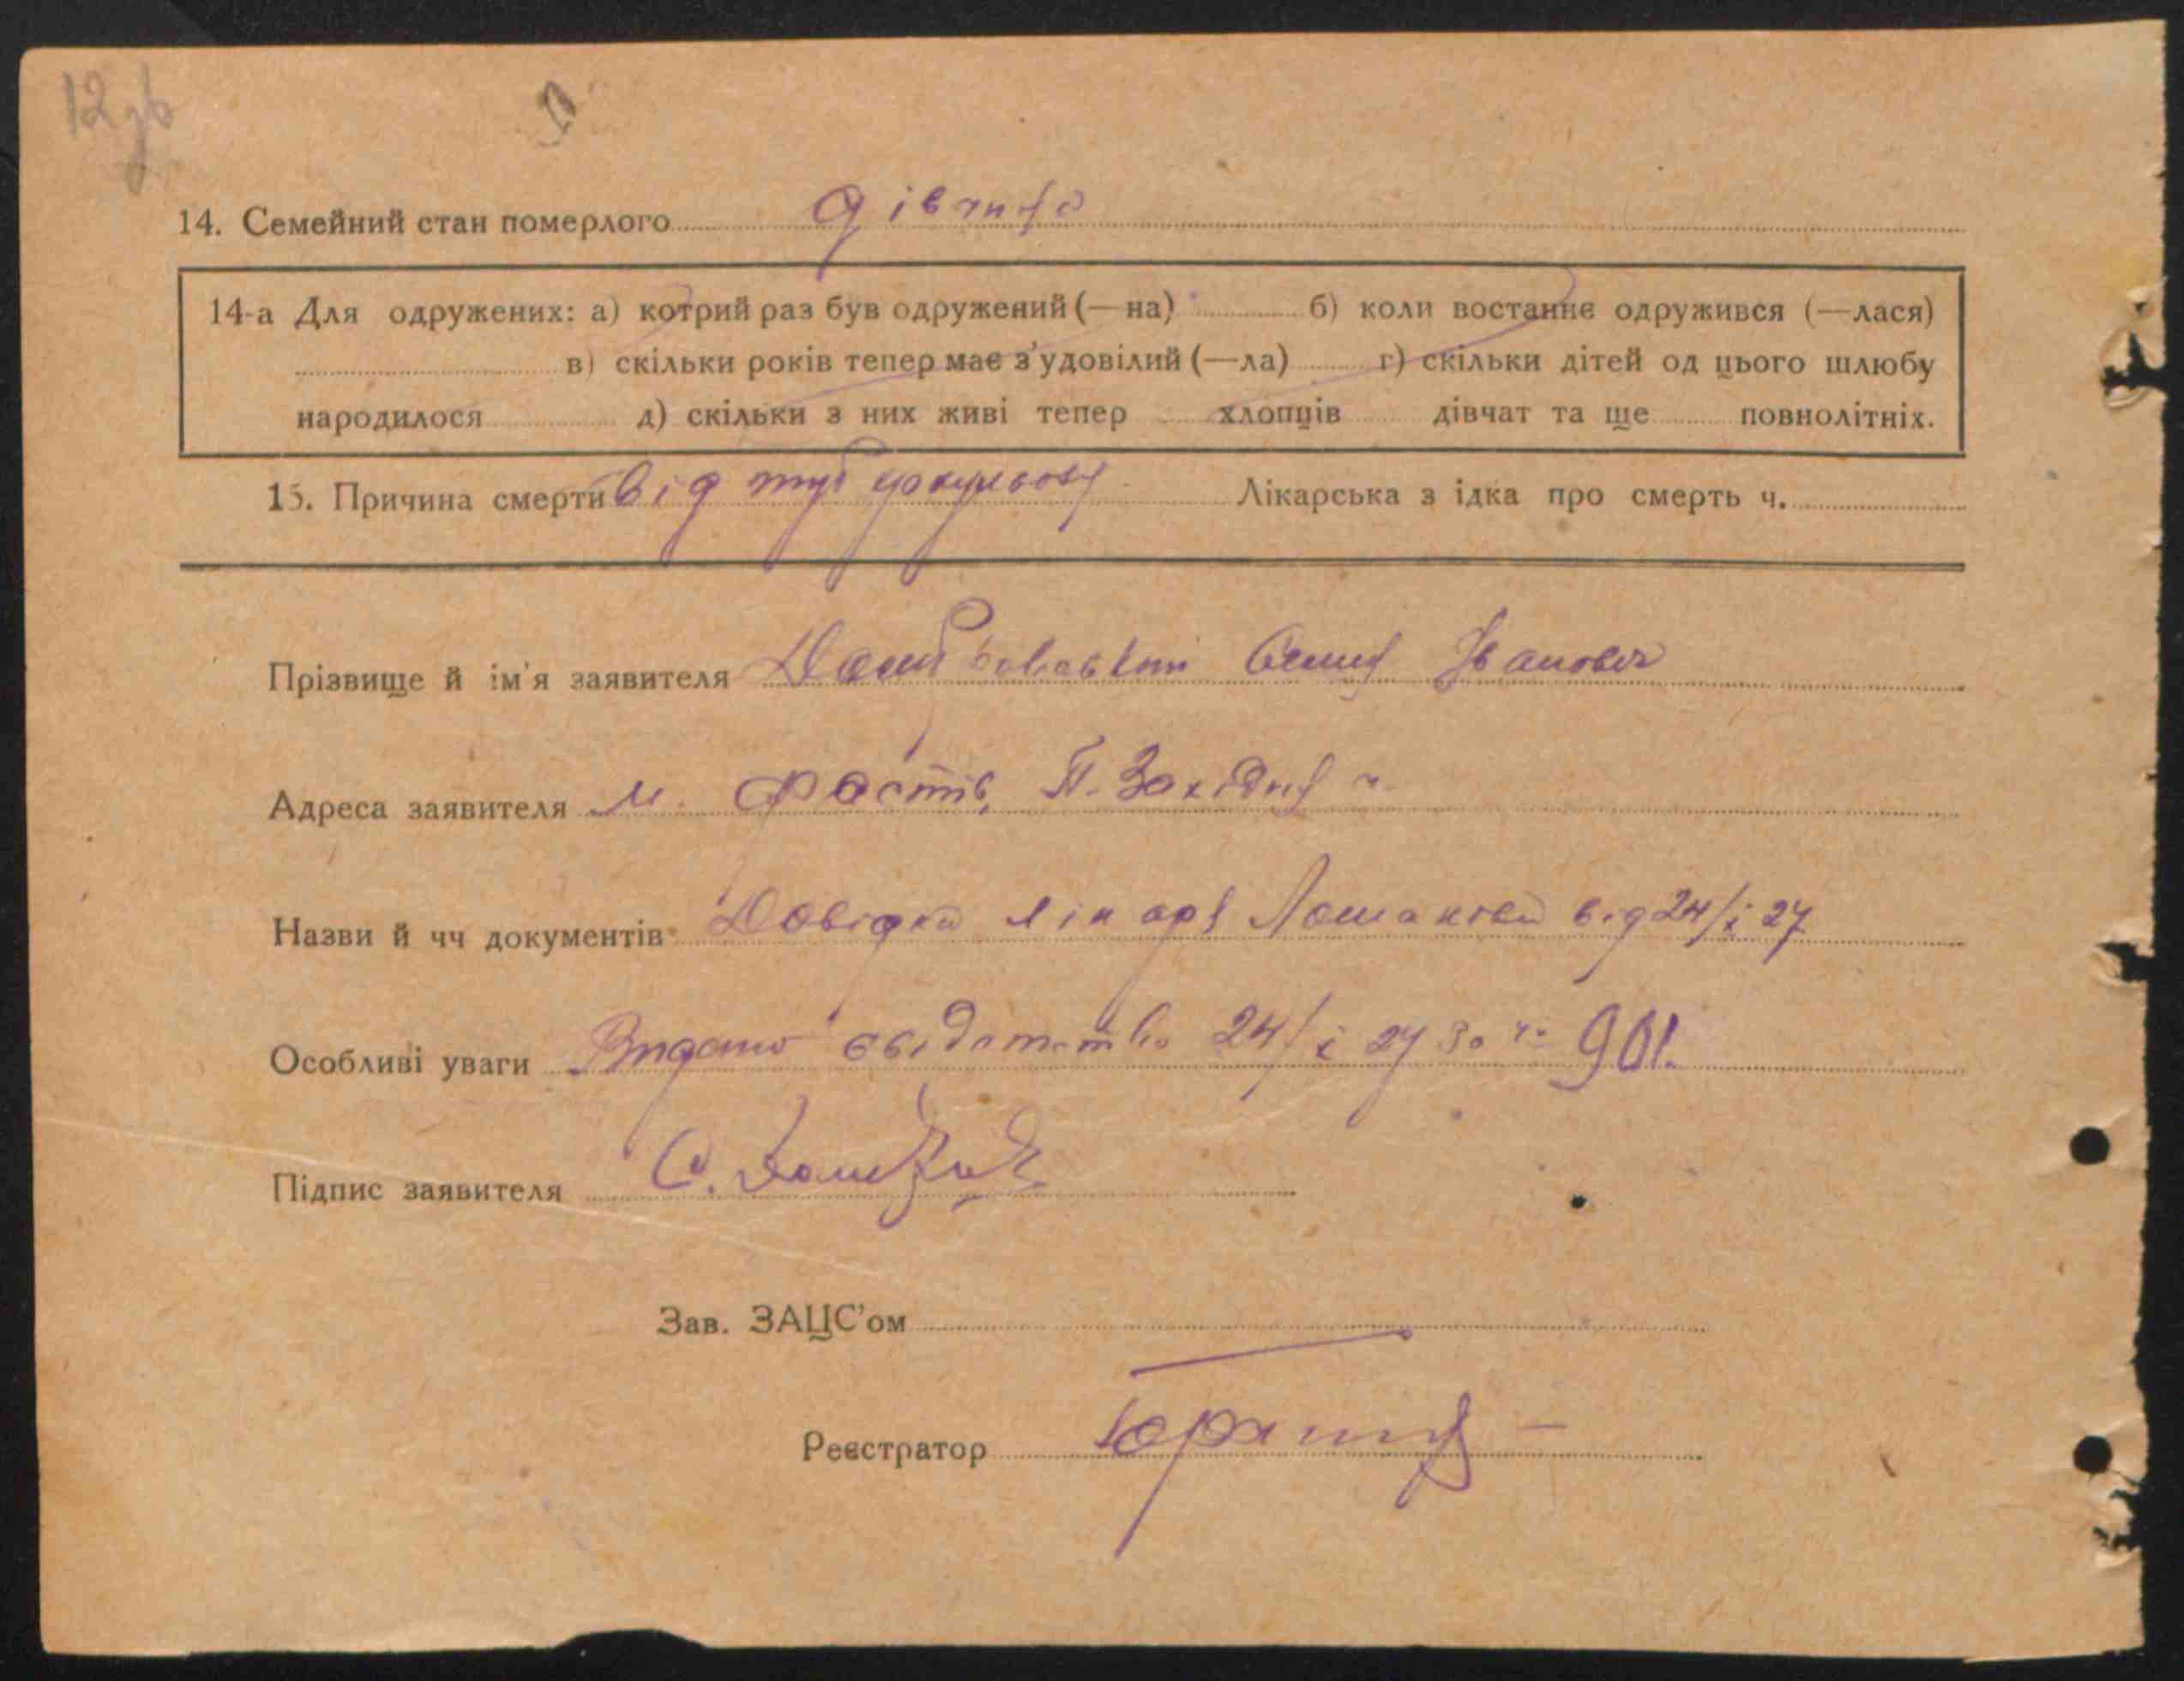 12зв
14. Семейний стан померлого дівчина
14-а Для одружених: а) котрий раз був одружений (—на) б) коли востаннє одружився (—лася)
в) скільки років тепер має з'удовілий (—ла) г) скільки дітей од цього шлюбу
народилося д) скільки з них живі тепер хлопців дівчат та ще повнолітніх.
15. Причина смерти від туберкульозу Лікарська з ідка про смерть ч.
Прізвище й ім'я заявителя Іванович
Адреса заявителя м. Фастів, П. Західня
Назви й чч документів Довідка лікаря від 24/X 27
Особливі уваги Видано свідотство 24/X 27 за ч. 901.
Підпис заявителя С.
Зав. ЗАЦС'ом
Реєстратор